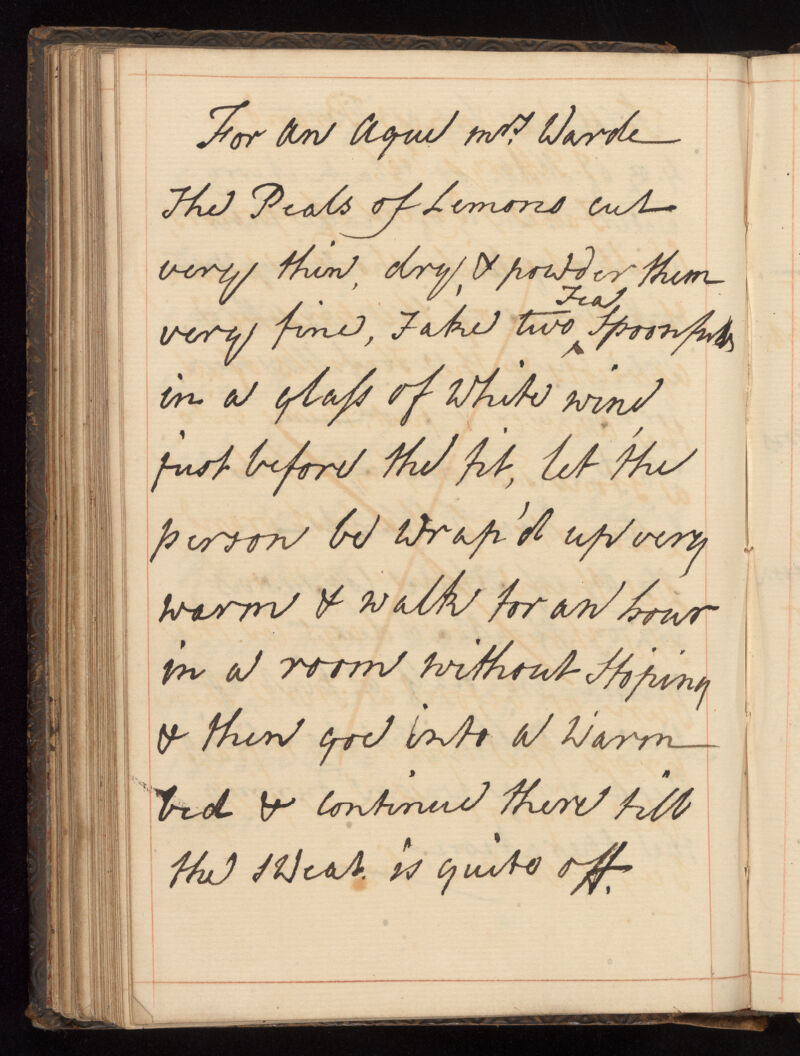 For an Ague mrs. Warde
The Peals of Lemons cut
very thin, dry, & powder them
very fine, Take two ^Tea Spoonfulls
in a glass of White wine
just before the fit, let the
person be Wrap'd up very
warm & walk for an hour
in a room without Stoping
& then goe into a Warm
bed & Continue there till
the sweat is quite off.